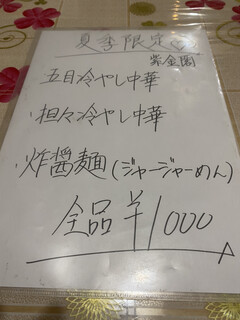 夏季限定♡
紫金閣
五目冷やし中華
・担々冷やし中華
・炸醤麺(ジャージャーめん)
全品¥1000